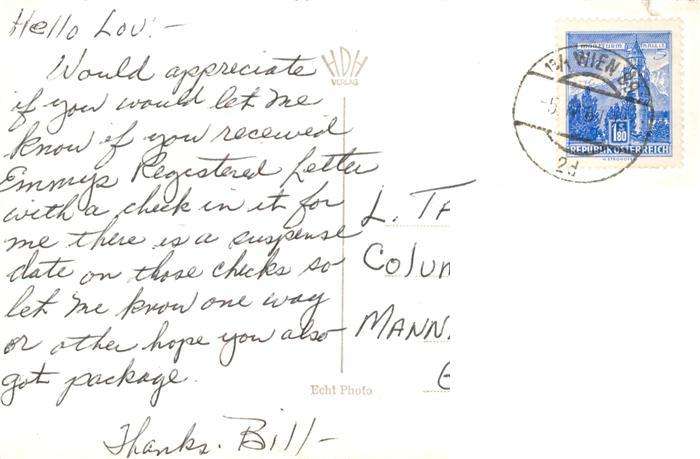 Hello Lou:-
Would appreciate
if you would let me
know if you received
Emmys Registered Letter
with a check in it for
me there is a suspense
date on those checks so
let me know one way
or other hope you also
got package.
Thanks. Bill-
HDH
VERLAG
Echt Photo
L. TA
Colum
MANN.
WIEN
2d
1.80
REPUBLIK ÖSTERREICH